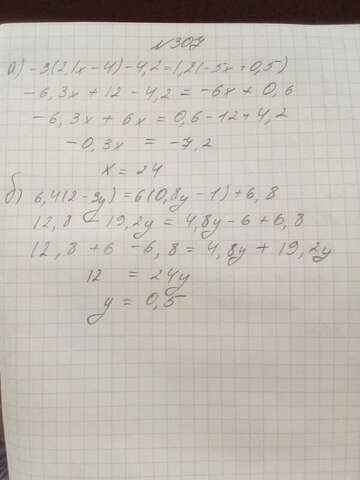 №307
а) -3(2,1x-4)-4,2=1,2(-5x+0,5)
-6,3x+12-4,2=-6x+0,6
-6,3x+6x=0,6-12+4,2
-0,3x=-7,2
x=24
б) 6,4(2-3y)=6(0,8y-1)+6,8
12,8-19,2y=4,8y-6+6,8
12,8+6-6,8=4,8y+19,2y
12=24y
y=0,5